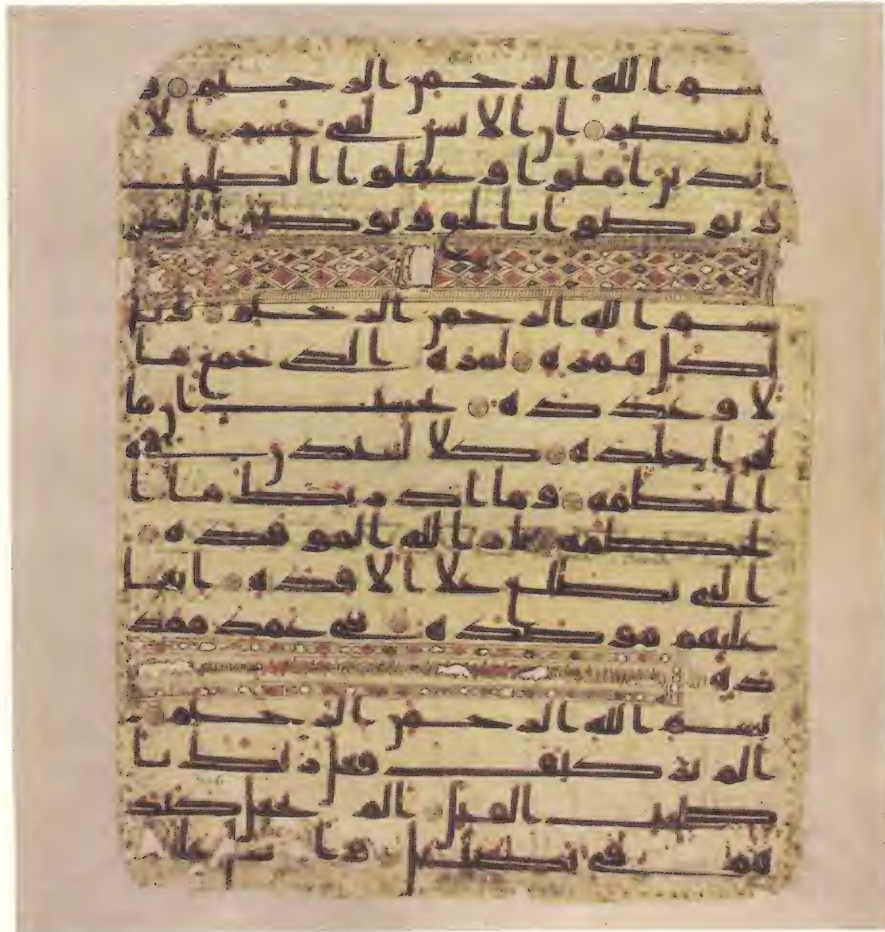 بسم الله الرحمن الرحيم و
العصر ان الانسن لفى خسر الا
الذين امنوا وعملوا الصلحت
و توصوا بالحق و توصوا بالصبر
بسم الله الرحمن الرحيم ويل
لكل همزه لمزه الذى جمع ما
لا وعدده يحسب ان ما
له اخلده كلا لينبذن فى
الحطمه وما ادريك ما ا
لحطمه نار الله الموقده
التى تطلع على الافده انها
عليهم موصده فى عمد ممد
ده
بسم الله الرحمن الرحيم
الم تر كيف فعل ربك با
صحب الفيل الم يجعل كيد
هم فى تضليل وارسل عليـ